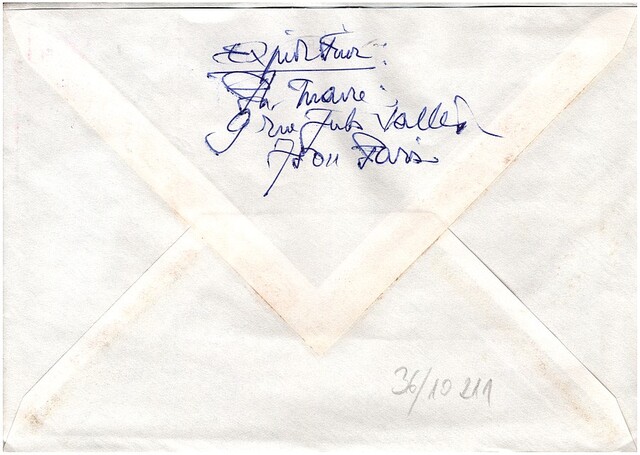 Expéditeur :
9 rue Jules Vallès
75011 Paris
36/10 211